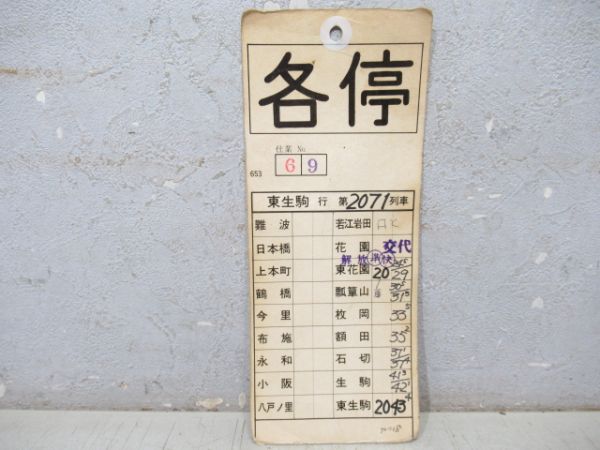 各停
仕業 No
6 9
653
東生駒 行 第2071列車
難波 若江岩田
日本橋 花園 交代
上本町 東花園 20 29
鶴橋 瓢箪山
今里 枚岡 33⁵
布施 額田 35²
永和 石切
小阪 生駒
八戸ノ里 東生駒 2043⁴